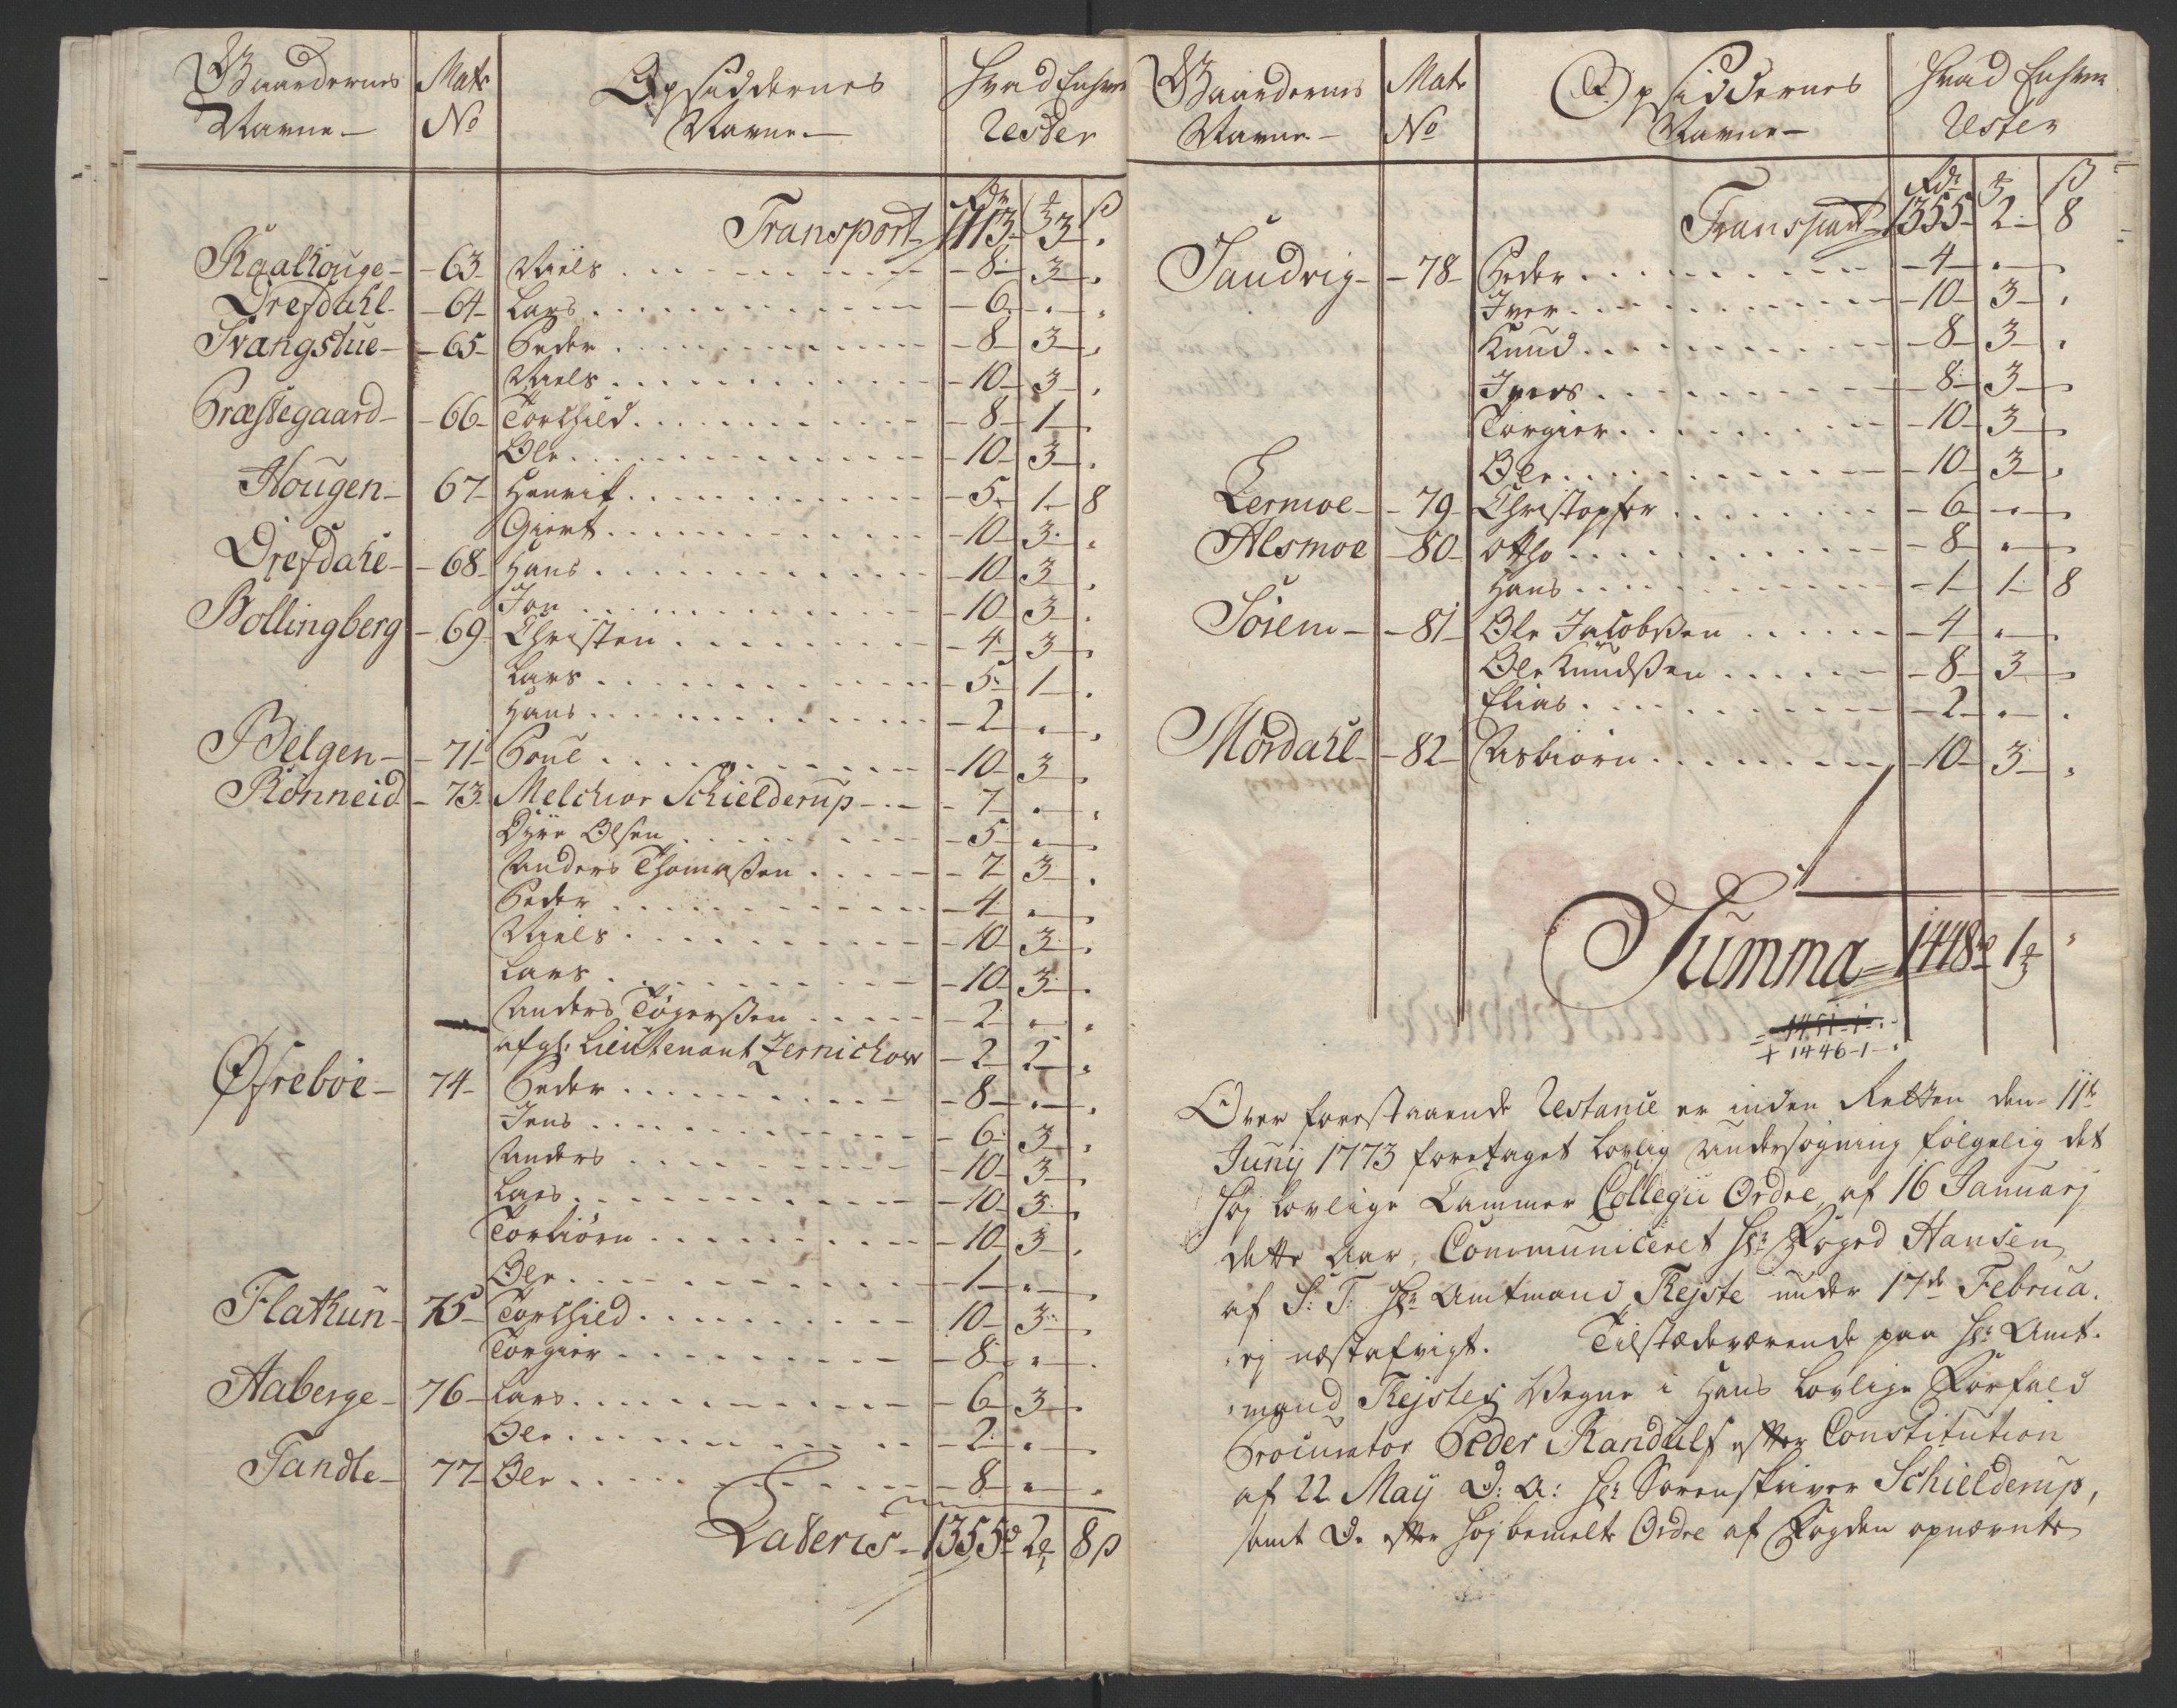 Gaardernes Matr Opsiddernes Hvad Enhver
Navne — No Navne — Rester
Rdr ₰ ß
Transport 1113 3 .
Kaalhouge — 63 Niels 8 3 .
Drefdahl 64 Lars 6 . .
Svangstue 65 Peder 8 3 .
Niels 10 3 .
Præstegaard 66 Torchild 8 1 .
Ole 10 3 .
Hougen 67 Henrik 5 1 8
Giert 10 3 .
Drefdahl 68 Hans 10 3 .
Jon 10 3 .
Bollingberg 69 Christen 4 3 .
Lars 5 1 .
Hans 2 . .
Belgen 71 Poul 10 3 .
Rönneid 73 Melchior Schielderup 7 . .
Dyre Olsen 5 . .
Anders Thomasen 7 3 .
Peder 4 . .
Niels 10 3 .
Lars 10 3 .
Anders Tøgersen 2 . .
afg: Lieutenant Zernichow 2 2 .
Øfreböe 74 Peder 8 . .
Jens 6 3 .
Anders 10 3 .
Lars 10 3 .
Torbiörn 10 3 .
Ole 1 . .
Flathun 75 Torchild 10 3 .
Torgier 8 . .
Aaberge 76 Lars 6 3 .
Ole 2 . .
Tandle 77 Ole 8 . .
Lateris 1355 2 8 ß
Gaardernes Matr Opsiddernes Hvad Enhver
Navne — No Navne — Rester
Rdr ₰ ß
Transport 1355 2 8
Sandvig 78 Peder 4 . .
Iver 10 3 .
Knud 8 3 .
Ivers 8 3 .
Torgier 10 3 .
Ole 10 3 .
Lermoe 79 Christopfer 6 . .
Alsmoe 80 Otto 8 . .
Hans 1 1 8
Söiem 81 Ole Jacobsen 4 . .
Ole Knudsen 8 3 .
Elias 2 . .
Mordahl 82 Asbiörn 10 3 .
Summa 1448 1 .
1451-1-.
+ 1446-1-.
Over forestaaende Restance er inden Retten den 11te
Junÿ 1773 foretaget lovlig undersøgning følgelig det
Høj lovlige Cammer Collegii Ordre af 16 Januarj
dette Aar, Communiceret Hr Foged Hansen
af S: T: Hr Amtmand Rejste under 17de Februa-
rj næstafvigt. Tilstædeværende paa Hr Amt-
mand Rejstes Vegne i Hans lovlige Forfald
Procurator Peder Randulf efter Constitution
af 22 Maÿ D: A: Hr Sorenskriver Schielderup,
samt De efter Højbemelte Ordre af Fogden opnævnte